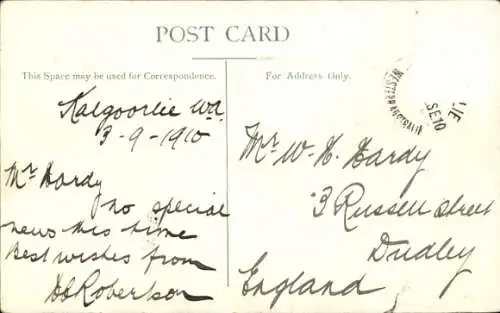 POST CARD
This Space may be used for Correspondence.
For Address Only.
Kalgoorlie W.A.
3-9-1910
Mr Hardy
no special
news this time
Best wishes from
Robertson
Mr W. H. Hardy
3 Russell Street
Dudley
England
LIE
SE 10
WESTERN AUSTRALIA